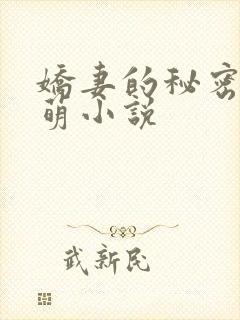 嬌妻的秘密
萌小説
武新民